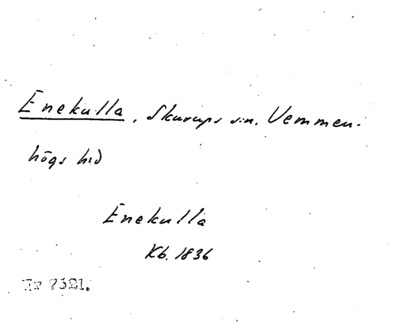 Enekulla, Skurups sn. Vemmen-
högs hd
Enekulla
Kb. 1836